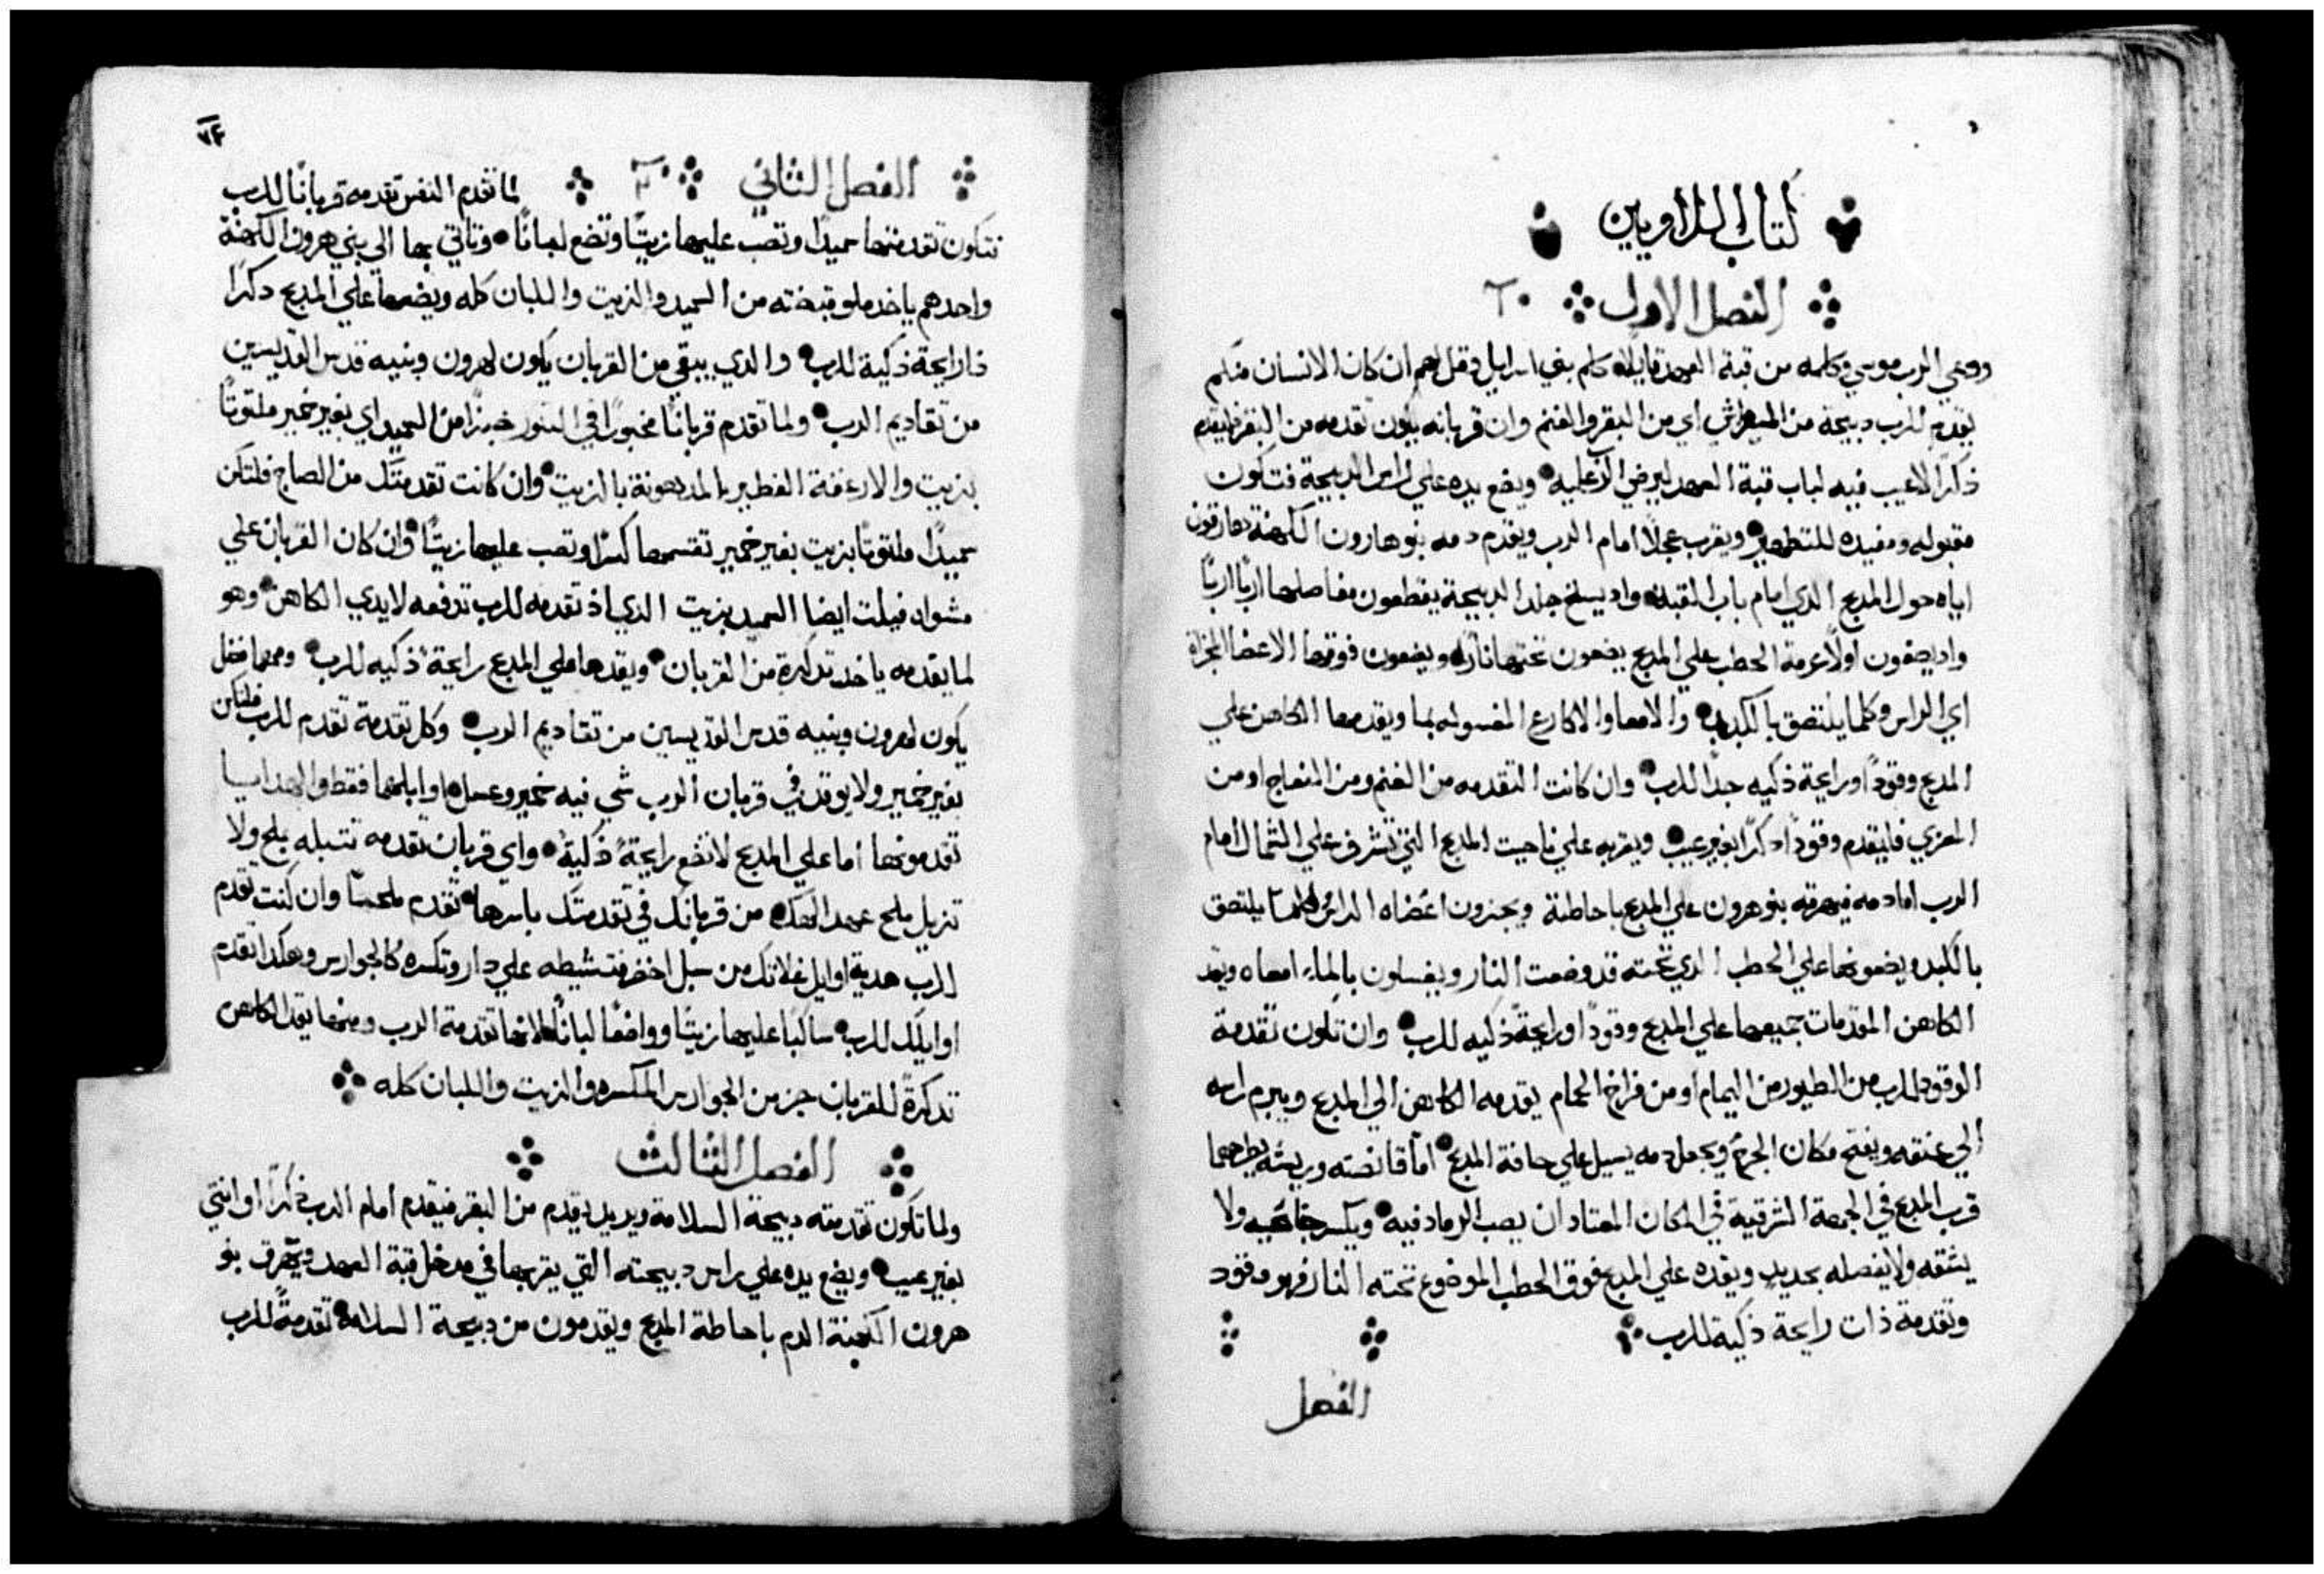 كتاب اللاويين
الفصل الاول
ودعي الرب موسي وكلمه من قبة العهد قايلاً كلم بني اسرايل وقل لهم ان كان الانسان منكم
يقدم للرب دبيحة من المواشي اي من البقر والغنم وان قربانه يكون تقدمه من البقر فليقدم
ذكرًا لاعيب فيه لباب قبة العهد ليرضي الرب عليه ويضع يده علي راس الدبيحة فتكون
مقبوله ومفيده للتطهير ويقرب عجلاً امام الرب ويقدم دمه بنو هارون الكهنة هارقون
اياه حول المدبح الدي امام باب القبه واد يسلخ جلد الدبيحة يقطعون مفاصلها اربًا اربًا
واد يصفون اولاً عرمة الحطب علي المدبح يضعون تحتها نارًا ويضعون فوقها الاعضا المجزاة
اي الراس وكلما يلتصق بالكبد والامعا والاكارع المغسوله بما ويقدمها الكاهن علي
المدبح وقودًا ورايحة ذكيه جدًا للرب وان كانت التقدمه من الغنم ومن النعاج او من
المعزي فليقدم وقودًا دكرًا بغير عيب ويقربه علي ناحيت المدبح التي تشرف علي الشمال امام
الرب اما دمه فيهرقه بنو هرون علي المدبح باحاطة ويجزون اعضاه الراس وكلما يلتصق
بالكبد ويضعونها علي الحطب الدي تحته قد وضعت النار ويغسلون بالماء امعاه ويقد
الكاهن المقدمات جميعها علي المدبح وقودًا ورايحةً ذكيه للرب وان تكون تقدمة
الوقود للرب من الطيور من اليمام او من فراخ الحمام يقدمه الكاهن الي المدبح ويبرم راسه
الي عنقه ويفتح مكان الجرح ويجعل دمه يسيل علي حافة المدبح اما قانصته وريشه يطرحهما
قرب المدبح في الجهة الشرقية في المكان المعتاد ان يصب الرماد فيه ويكسر جناحيه ولا
يشقه ولا يفصله بحديد ويقده علي المدبح فوق الحطب الموضوع تحته النار فهو وقود
وتقدمة ذات رايحة ذكية للرب
الفصل
٧٤
الفصل الثاني لما تقدم النفس تقدمه قربانًا للرب
فتكون تقدمتها سميدًا وتصب عليها زيتًا وتضع لبانًا وتاتي بها الي بني هرون الكهنة
واحدهم ياخد ملو قبضته من السميد والزيت واللبان كله ويضعها علي المدبح دكرًا
ذا رايحة ذكية للرب والدي يبقي من القربان يكون لهرون وبنيه قدس القديسين
من تقاديم الرب ولما تقدم قربانًا مخبوزًا في التنور خبزًا من السميد اي بغير خمير ملتوتًا
بزيت والارغفة الفطير المدهونة بالزيت وان كانت تقدمتك من الصاج فلتكن
سميدًا ملتوتًا بزيت بغير خمير تقسمها كسرًا وتصب عليها زيتًا وان كان القربان علي
مشواه فيلت ايضا السميد بزيت الدي اذ تقدمه للرب تدفعه لايدي الكاهن وهو
لما يقدمه ياخد تدكرة من القربان ويقدها علي المدبح رايحة ذكيه للرب ومهما فضل
يكون لهرون وبنيه قدس القديسين من تقاديم الرب وكل تقدمة تقدم للرب فلتكن
بغير خمير ولا يوقد في قربان الرب شي فيه خمير وعسل اوايلهما فقط والهدايا
تقدمونها اما علي المدبح لا تضع رايحةً ذكيةً واي قربان تقدمه تتبله بملح ولا
تزيل ملح عهد الهك من قربانك في تقدمتك باسرها تقدم ملحًا وان كنت تقدم
للرب هدية اوايل غلاتك من سبل اخضر فتشيطه علي نار وتكسره كالجوارس وهكدا تقدم
اوايلك للرب ساكبًا عليها زيتًا وواضعًا لبانًا لانها تقدمة الرب ومنها يقد الكاهن
تدكرةً للقربان جز من الجوارس المكسره والزيت واللبان كله
الفصل الثالث
ولما تكون تقدمته دبيحة السلامة ويريد يقدم من البقر فيقدم امام الرب ذكرًا او انتي
بغير عيب ويضع يده علي راس دبيحته التي يقربها في مدخل قبة العهد ويهرق بنو
هرون الكهنة الدم باحاطة المدبح ويقدمون من دبيحة السلامة تقدمةً للرب